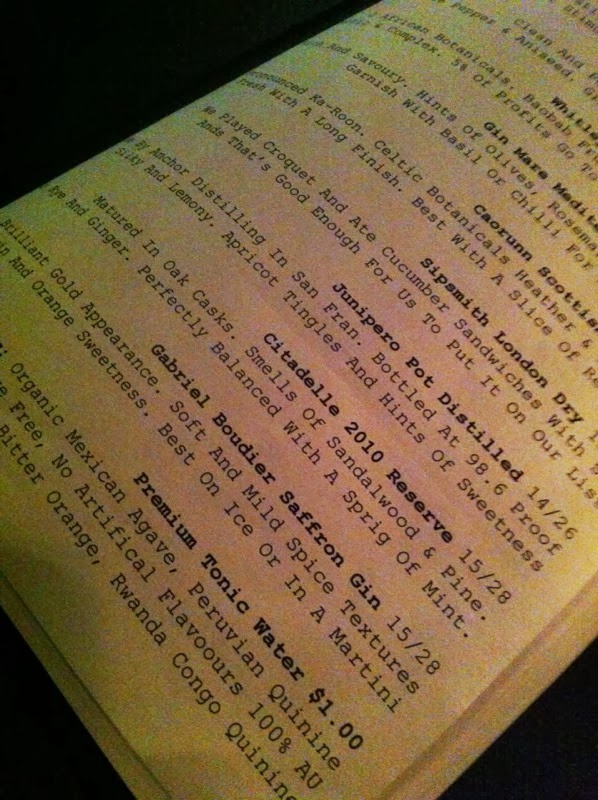 Clean And
Pepper & Aniseed.
African Botanicals. Baobab
& Complex. 5% Of Profits Go To
Gin Mare
And Savoury. Hints Of Olives,
Garnish With Basil Or Chilli For
Caorunn Scottish
Ka-Roon. Celtic Botanicals Heather &
With A Long Finish. Best With A Slice Of
Sipsmith London Dry
Played Croquet And Ate Cucumber Sandwiches With
That's Good Enough For Us To Put It On Our List
Junipero Pot Distilled 14/26
By Anchor Distilling In San Fran. Bottled At 98.6 Proof
Silky And Lemony. Apricot Tingles And Hints Of Sweetness
Citadelle 2010 Reserve 15/28
Matured In Oak Casks. Smells Of Sandalwood & Pine.
Rye And Ginger. Perfectly Balanced With A Sprig Of Mint.
Gabriel Boudier Saffron Gin 15/28
Brilliant Gold Appearance. Soft And Mild Spice Textures
And Orange Sweetness. Best On Ice Or In A Martini
Premium Tonic Water $1.00
Organic Mexican Agave, Peruvian Quinine
Free, No Artifical Flavoours 100% AU
Bitter Orange, Rwanda Congo Quinine